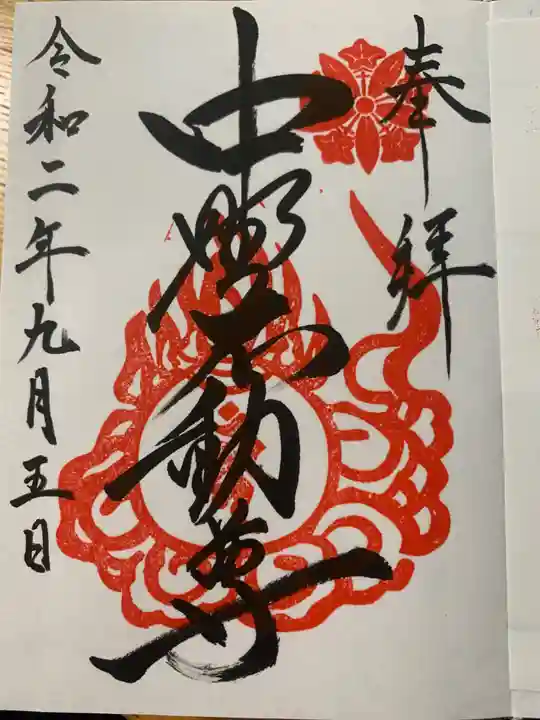 奉拝
中野不動尊
令和二年九月五日